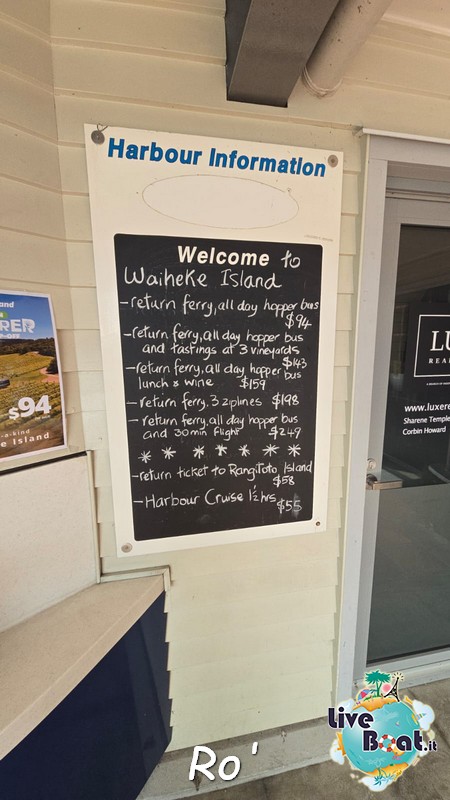 Harbour Information
Welcome to
Waiheke Island
- return ferry, all day hopper bus
$94
- return ferry, all day hopper bus
and tastings at 3 vineyards
$143
- return ferry, all day hopper bus
lunch & wine $159
- return ferry. 3 ziplines $198
- return ferry, all day hopper bus
and 30min flight $249
* * * * * * *
- return ticket to Rangitoto Island
$58
- Harbour Cruise 1½ hrs
$55
$94
Island
LU
REA
www.luxere
Sharene Temple
Corbin Howard
Live Boat.it
Ro'